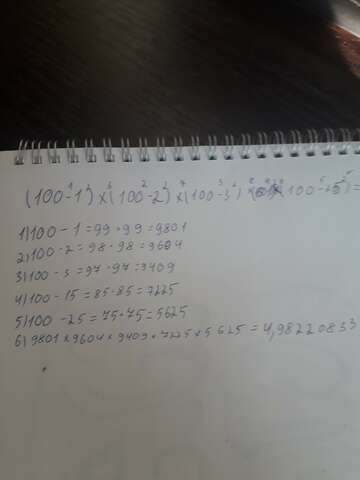 (100-1²)×(100-2²)×(100-3²) (100-25²)=
1)100-1=99·99=9801
2)100-2=98·98=9604
3)100-3=97·97=9409
4)100-15=85·85=7225
5)100-25=75·75=5625
6)9801×9604×9409×7225×5625=4,98220833